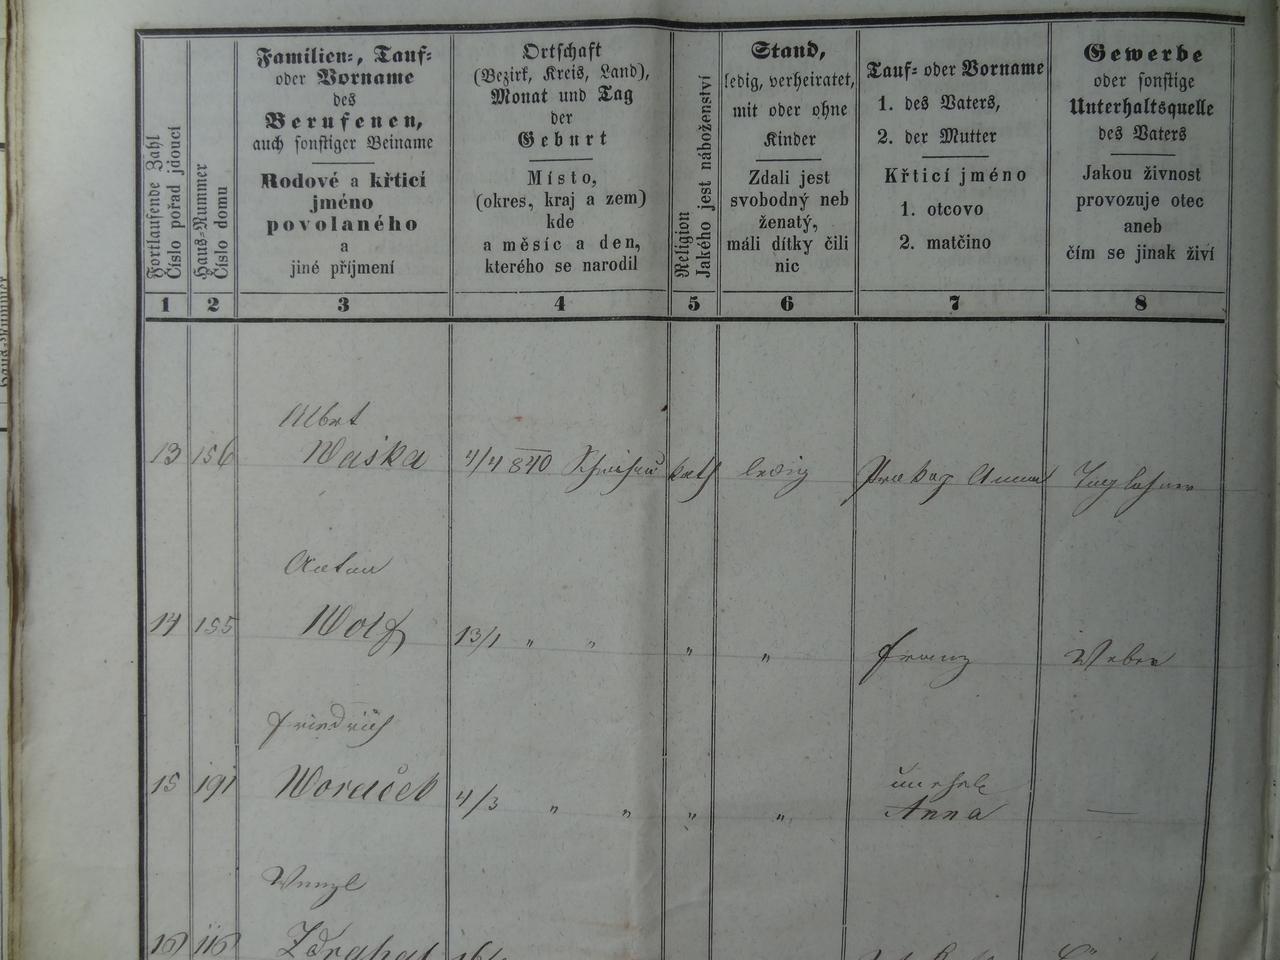 Fortlaufende Zahl
Číslo pořad jdoucí
Haus-Nummer
Číslo domu
Familien-, Tauf-
oder Vorname
des
Berufenen,
auch sonstiger Beiname
Rodové a křticí
jméno
povolaného
a
jiné příjmení
Ortschaft
(Bezirk, Kreis, Land),
Monat und Tag
der
Geburt
Místo,
(okres, kraj a zem)
kde
a měsíc a den,
kterého se narodil
Religion
Jakého jest náboženství
Stand,
ledig, verheiratet,
mit oder ohne
Kinder
Zdali jest
svobodný neb
ženatý,
máli dítky čili
nic
Tauf- oder Vorname
1. des Vaters,
2. der Mutter
Křticí jméno
1. otcovo
2. matčino
Gewerbe
oder sonstige
Unterhaltsquelle
des Vaters
Jakou živnost
provozuje otec
aneb
čím se jinak živí
1 2 3 4 5 6 7 8
Albrt
13 156 Waska 4/4 840 kath ledig Prokop Anna Taglöhner
Anton
14 155 Wolf 13/1 " " " " Franz Weber
Friedrich
15 191 Woraček 4/3 " " " " unehel. —
Anna
Wenzl
16 116 Zdrahal